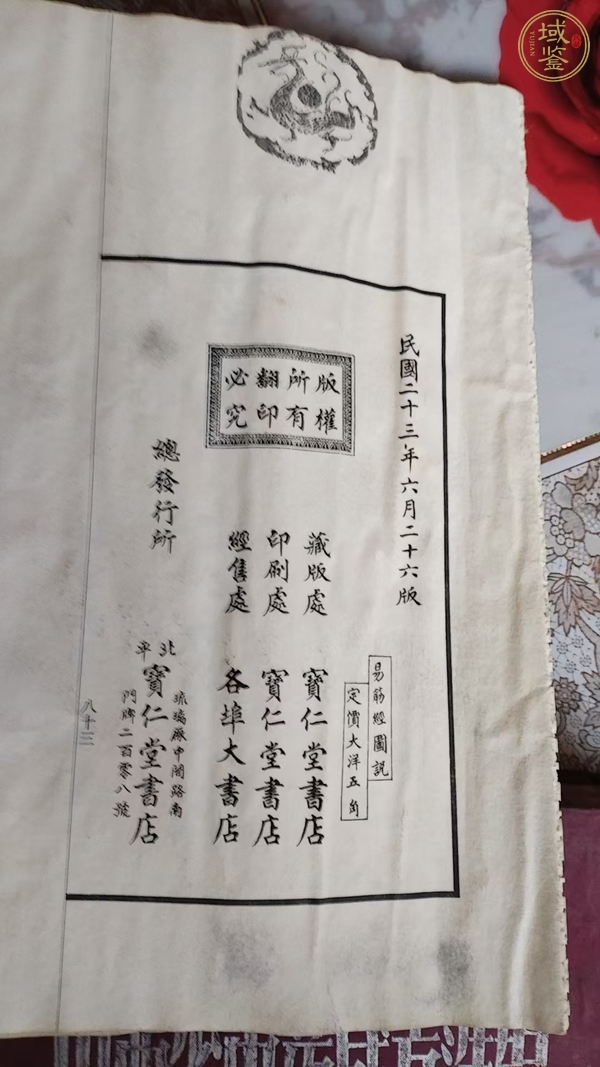 域鉴
YUJIAN
民國二十三年六月二十六版
易筋經圖説
定價大洋五角
版權
所有
翻印
必究
藏版處 寶仁堂書店
印刷處 寶仁堂書店
經售處 各埠大書店
總發行所
北平
寶仁堂書店
琉璃厰中間路南
門牌二百零八號
八十三